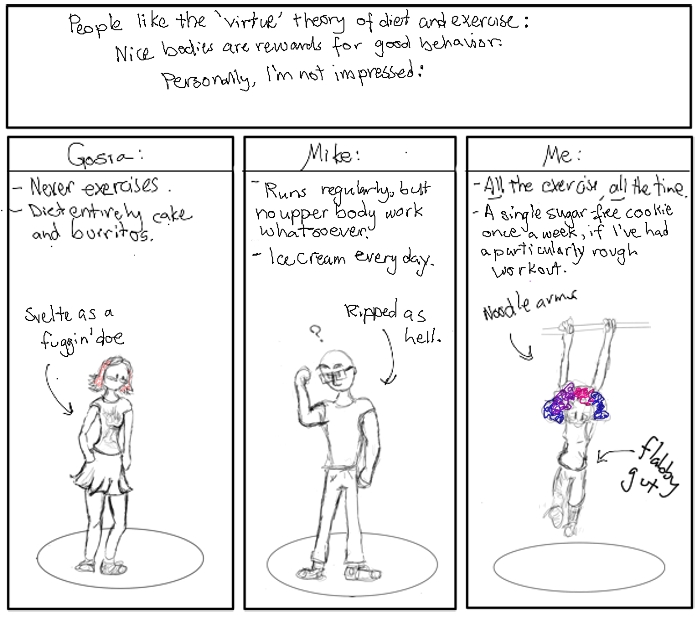 People like the 'virtue' theory of diet and exercise:
Nice bodies are rewards for good behavior.
Personally, I'm not impressed:
Gosia:
- Never exercises.
- Diet entirely cake
and burritos.
Svelte as a
fuggin' doe
Mike:
- Runs regularly, but
no upper body work
whatsoever.
- Ice cream every day.
Ripped as
hell.
?
Me:
- All the exercise, all the time.
- A single sugar-free cookie
once a week, if I've had
a particularly rough
workout.
Noodle arms
flabby
gut